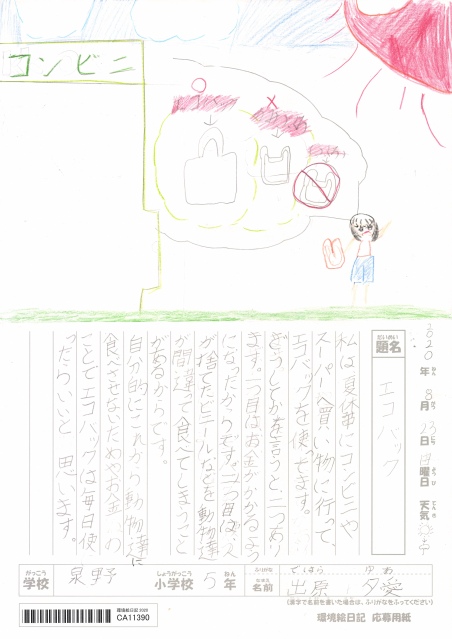 コンビニ
2020年 8月13日 曜日 天気
だいめい
題名 エコバック
私は夏休みにコンビニや
スーパーへ買い物に行って、
エコバックを使せます。
どうしてかを言うと、二つあり
ます。一つ目はお金がかかるよう
になったからです。二つ目は、人
が捨てたビニールなどを動物達
が間違って食べてしまうこと
があるからです。
自分的にこれから動物達に
食べさせないためやお金、の
ことでエコバックは毎日使
ったらいいと思います。
がっこう しょうがっこう ねん ふりがな なまえ
学校 泉野 小学校 5年 名前 出原 夕愛
ではら ゆあ
(漢字で名前を書いた場合は、ふりがなをふってください)
環境絵日記 2020
CA11390
環境絵日記 応募用紙